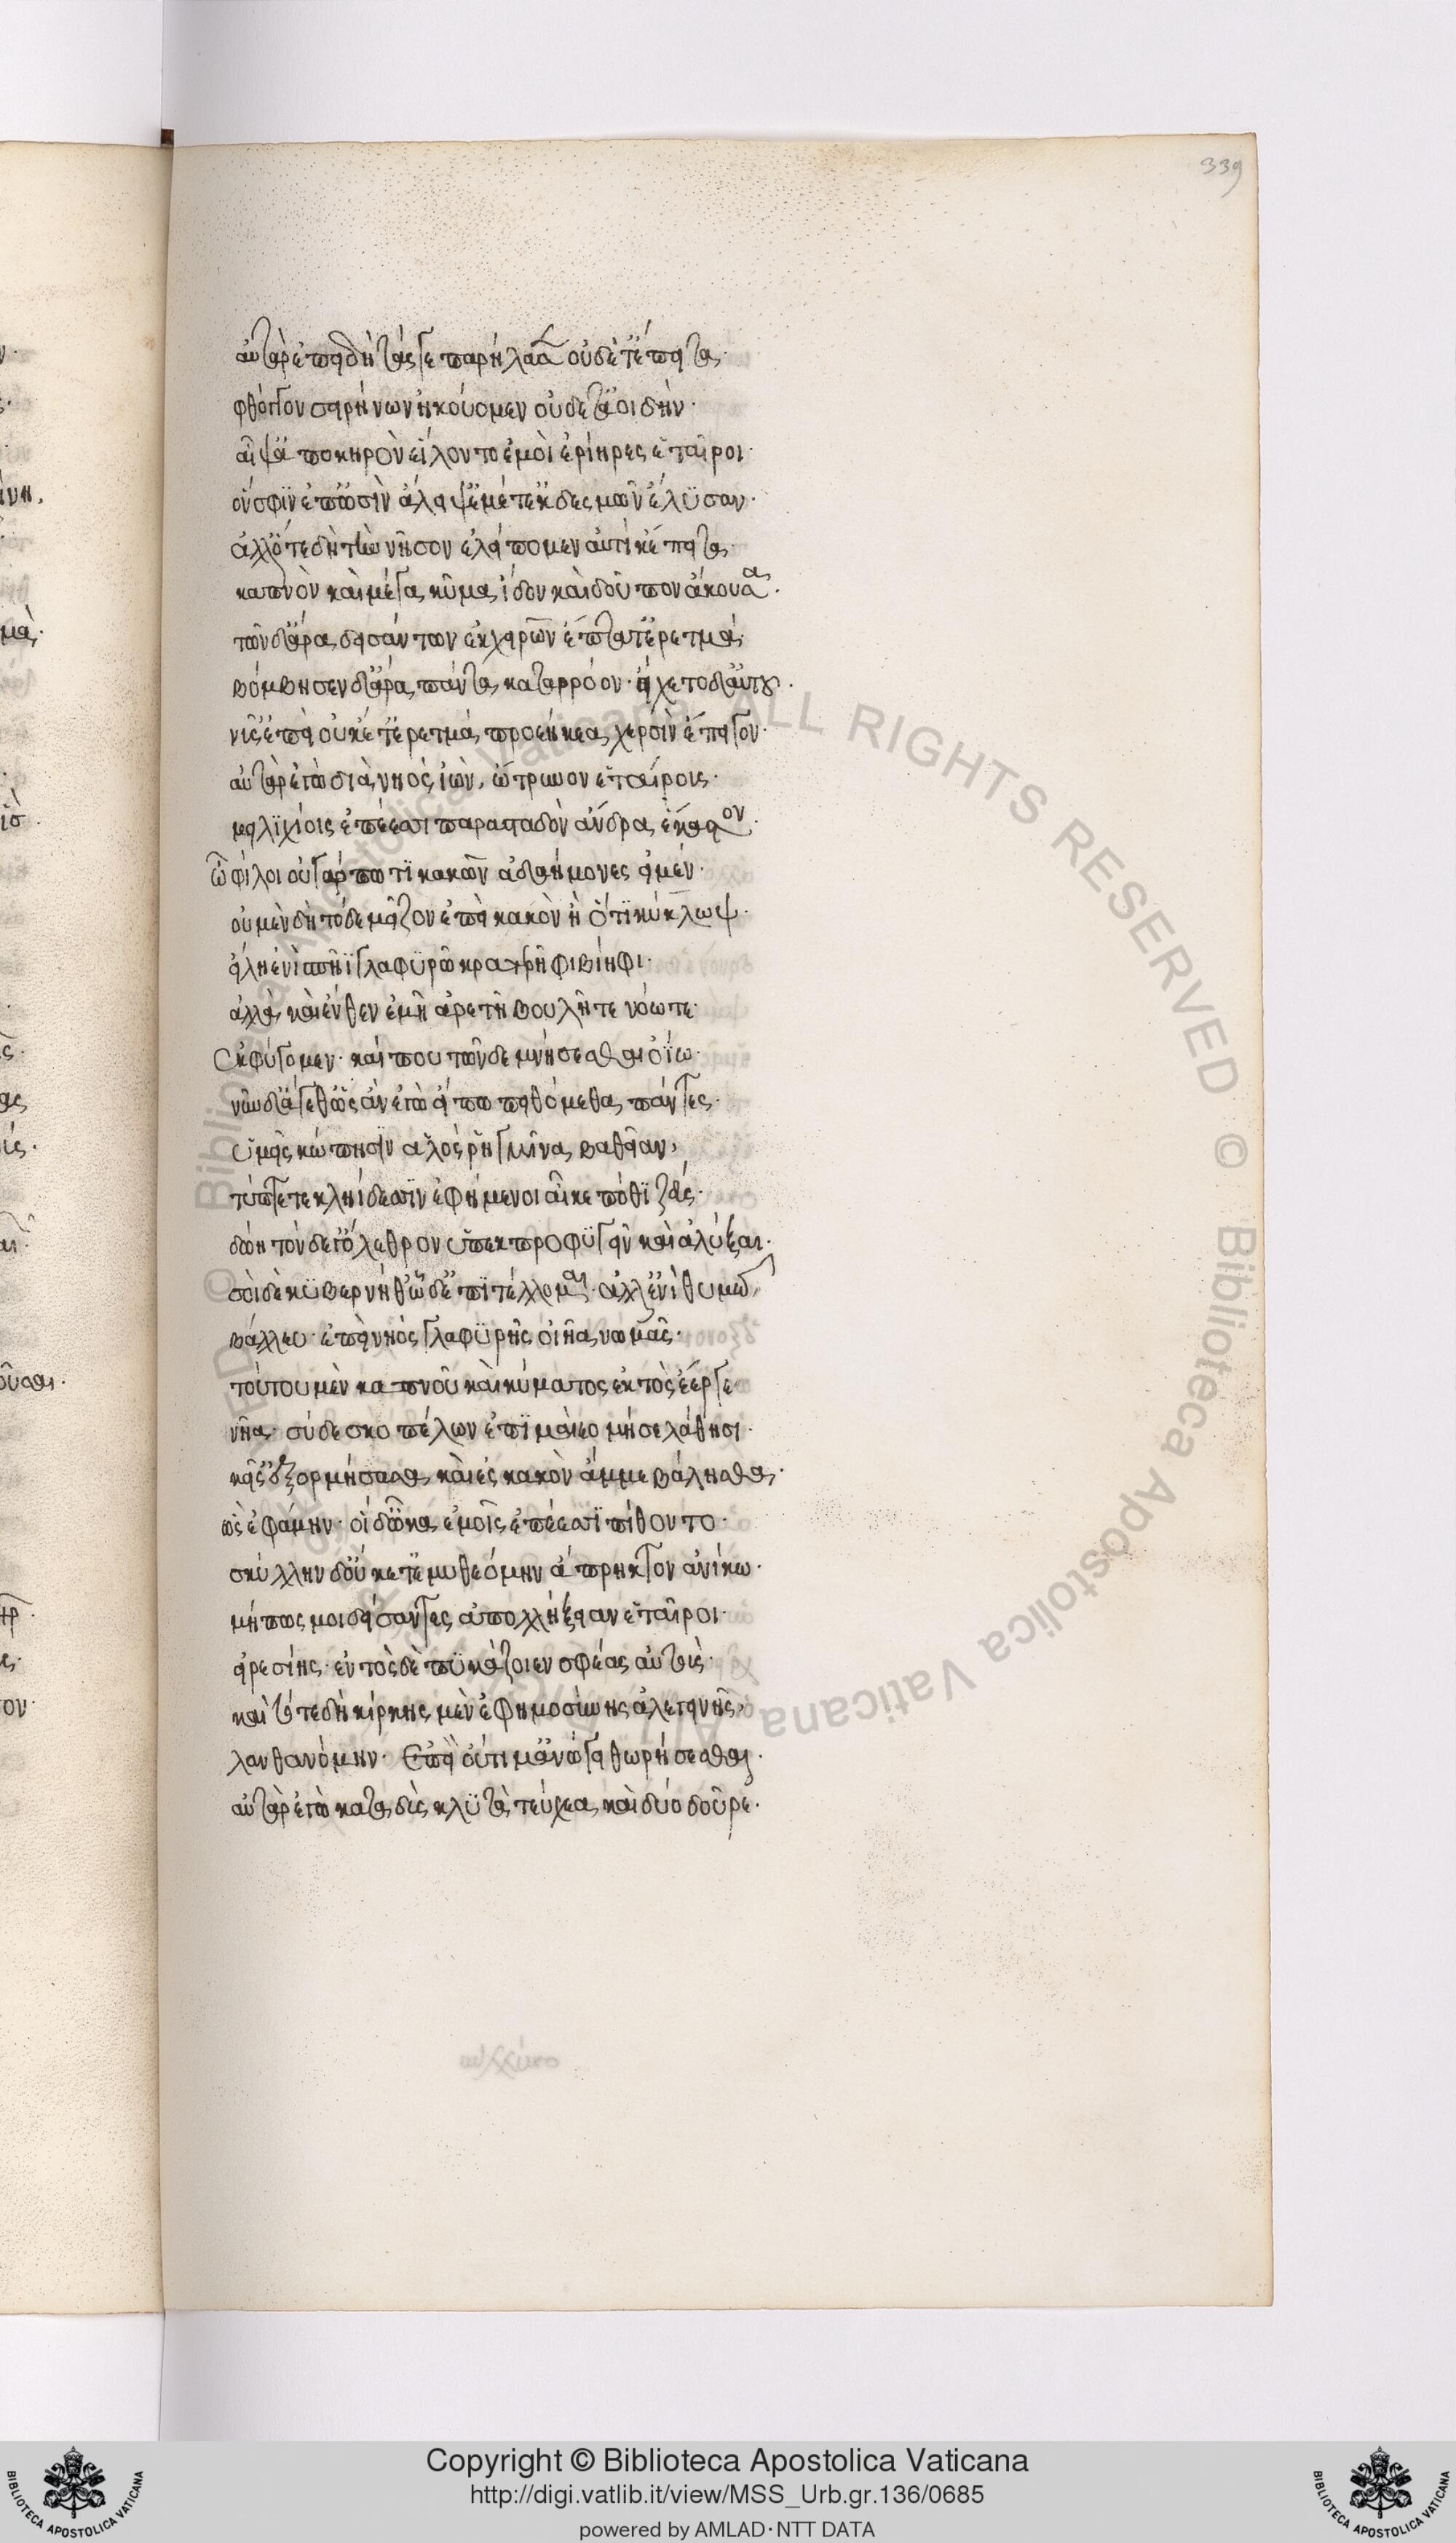 339
αὐτὰρ ἐπειδὴ τάς γε παρήλασα οὐδέ τ' ἔπειτα·
φθόγγον σειρήνων ἠκούομεν οὐδέ τ' ἀοιδήν·
αἶψ' ἀπὸ κηρὸν εἵλοντο ἐμοὶ ἐρίηρες ἑταῖροι·
ὅν σφιν ἐπ' ὠσὶν ἄλειψ' ἐμέ τ' ἐκ δεσμῶν ἔλυσαν·
ἀλλ' ὅτε δὴ τὴν νῆσον ἐλείπομεν αὐτίκ' ἔπειτα·
καπνὸν καὶ μέγα κῦμα ἴδον καὶ δοῦπον ἄκουσα·
τῶν δ' ἄρα δεισάντων ἐκ χειρῶν ἔπτατ' ἐρετμά·
βόμβησεν δ' ἄρα πάντα κατὰ ῥόον· ἔσχετο δ' αὐτοῦ·
νηῦς ἐπεὶ οὐκέτ' ἐρετμὰ προήκεα χερσὶν ἔπειγον·
αὐτὰρ ἐγὼ διὰ νηὸς ἰὼν, ὤτρυνον ἑταίρους·
μειλιχίοις ἐπέεσσι παρασταδὸν ἄνδρα ἕκαστον·
ὦ φίλοι οὐ γάρ πώ τι κακῶν ἀδαήμονές εἰμεν·
οὐ μὲν δὴ τόδε μεῖζον ἔπει κακὸν ἢ ὅτι κύκλωψ·
εἴλει ἐνὶ σπῆϊ γλαφυρῷ κρατερῆφι βίηφι·
ἀλλὰ καὶ ἔνθεν ἐμῇ ἀρετῇ βουλῇ τε νόω τε·
ἐκφύγομεν· καί που τῶνδε μνήσεσθαι ὀΐω·
νῦν δ' ἄγεθ' ὡς ἂν ἐγὼ εἴπω πειθώμεθα πάντες·
ὑμεῖς κώπῃσιν ἁλὸς ῥηγμῖνα βαθεῖαν,
τύπτετε κληΐδεσσιν ἐφήμενοι αἴ κέ ποθι ζεύς·
δώῃ τόνδε γ' ὄλεθρον ὑπεκπροφυγεῖν καὶ ἀλύξαι·
σοὶ δὲ κυβερνῆθ' ὧδ' ἐπιτέλλομαι· ἀλλ' ἐνὶ θυμῷ,
βάλλευ· ἐπεὶ νηὸς γλαφυρῆς οἰήια νωμᾷς·
τούτου μὲν καπνοῦ καὶ κύματος ἐκτὸς ἔεργε·
νῆα· σὺ δὲ σκοπέλων ἐπιμαίεο μή σε λάθῃσι·
κεῖσ' ἐξορμήσασα καὶ ἐς κακὸν ἄμμε βάλησθα·
ὣς ἐφάμην· οἱ δ' ὦκα ἐμοῖς ἐπέεσσι πίθοντο·
σκύλλην δ' οὐκέτ' ἐμυθεόμην ἄπρηκτον ἀνίην·
μή πως μοι δείσαντες ἀπολλήξειαν ἑταῖροι·
εἰρεσίης· ἐντὸς δὲ πυκάζοιεν σφέας αὐτούς·
καὶ τότε δὴ κίρκης μὲν ἐφημοσύνης ἀλεγεινῆς,
λανθανόμην· ἐπεὶ οὔτι μ' ἀνώγει θωρήσεσθαι·
αὐτὰρ ἐγὼ καταδὺς κλυτὰ τεύχεα καὶ δύο δοῦρε·
Copyright © Biblioteca Apostolica Vaticana
http://digi.vatlib.it/view/MSS_Urb.gr.136/0685
powered by AMLAD·NTT DATA